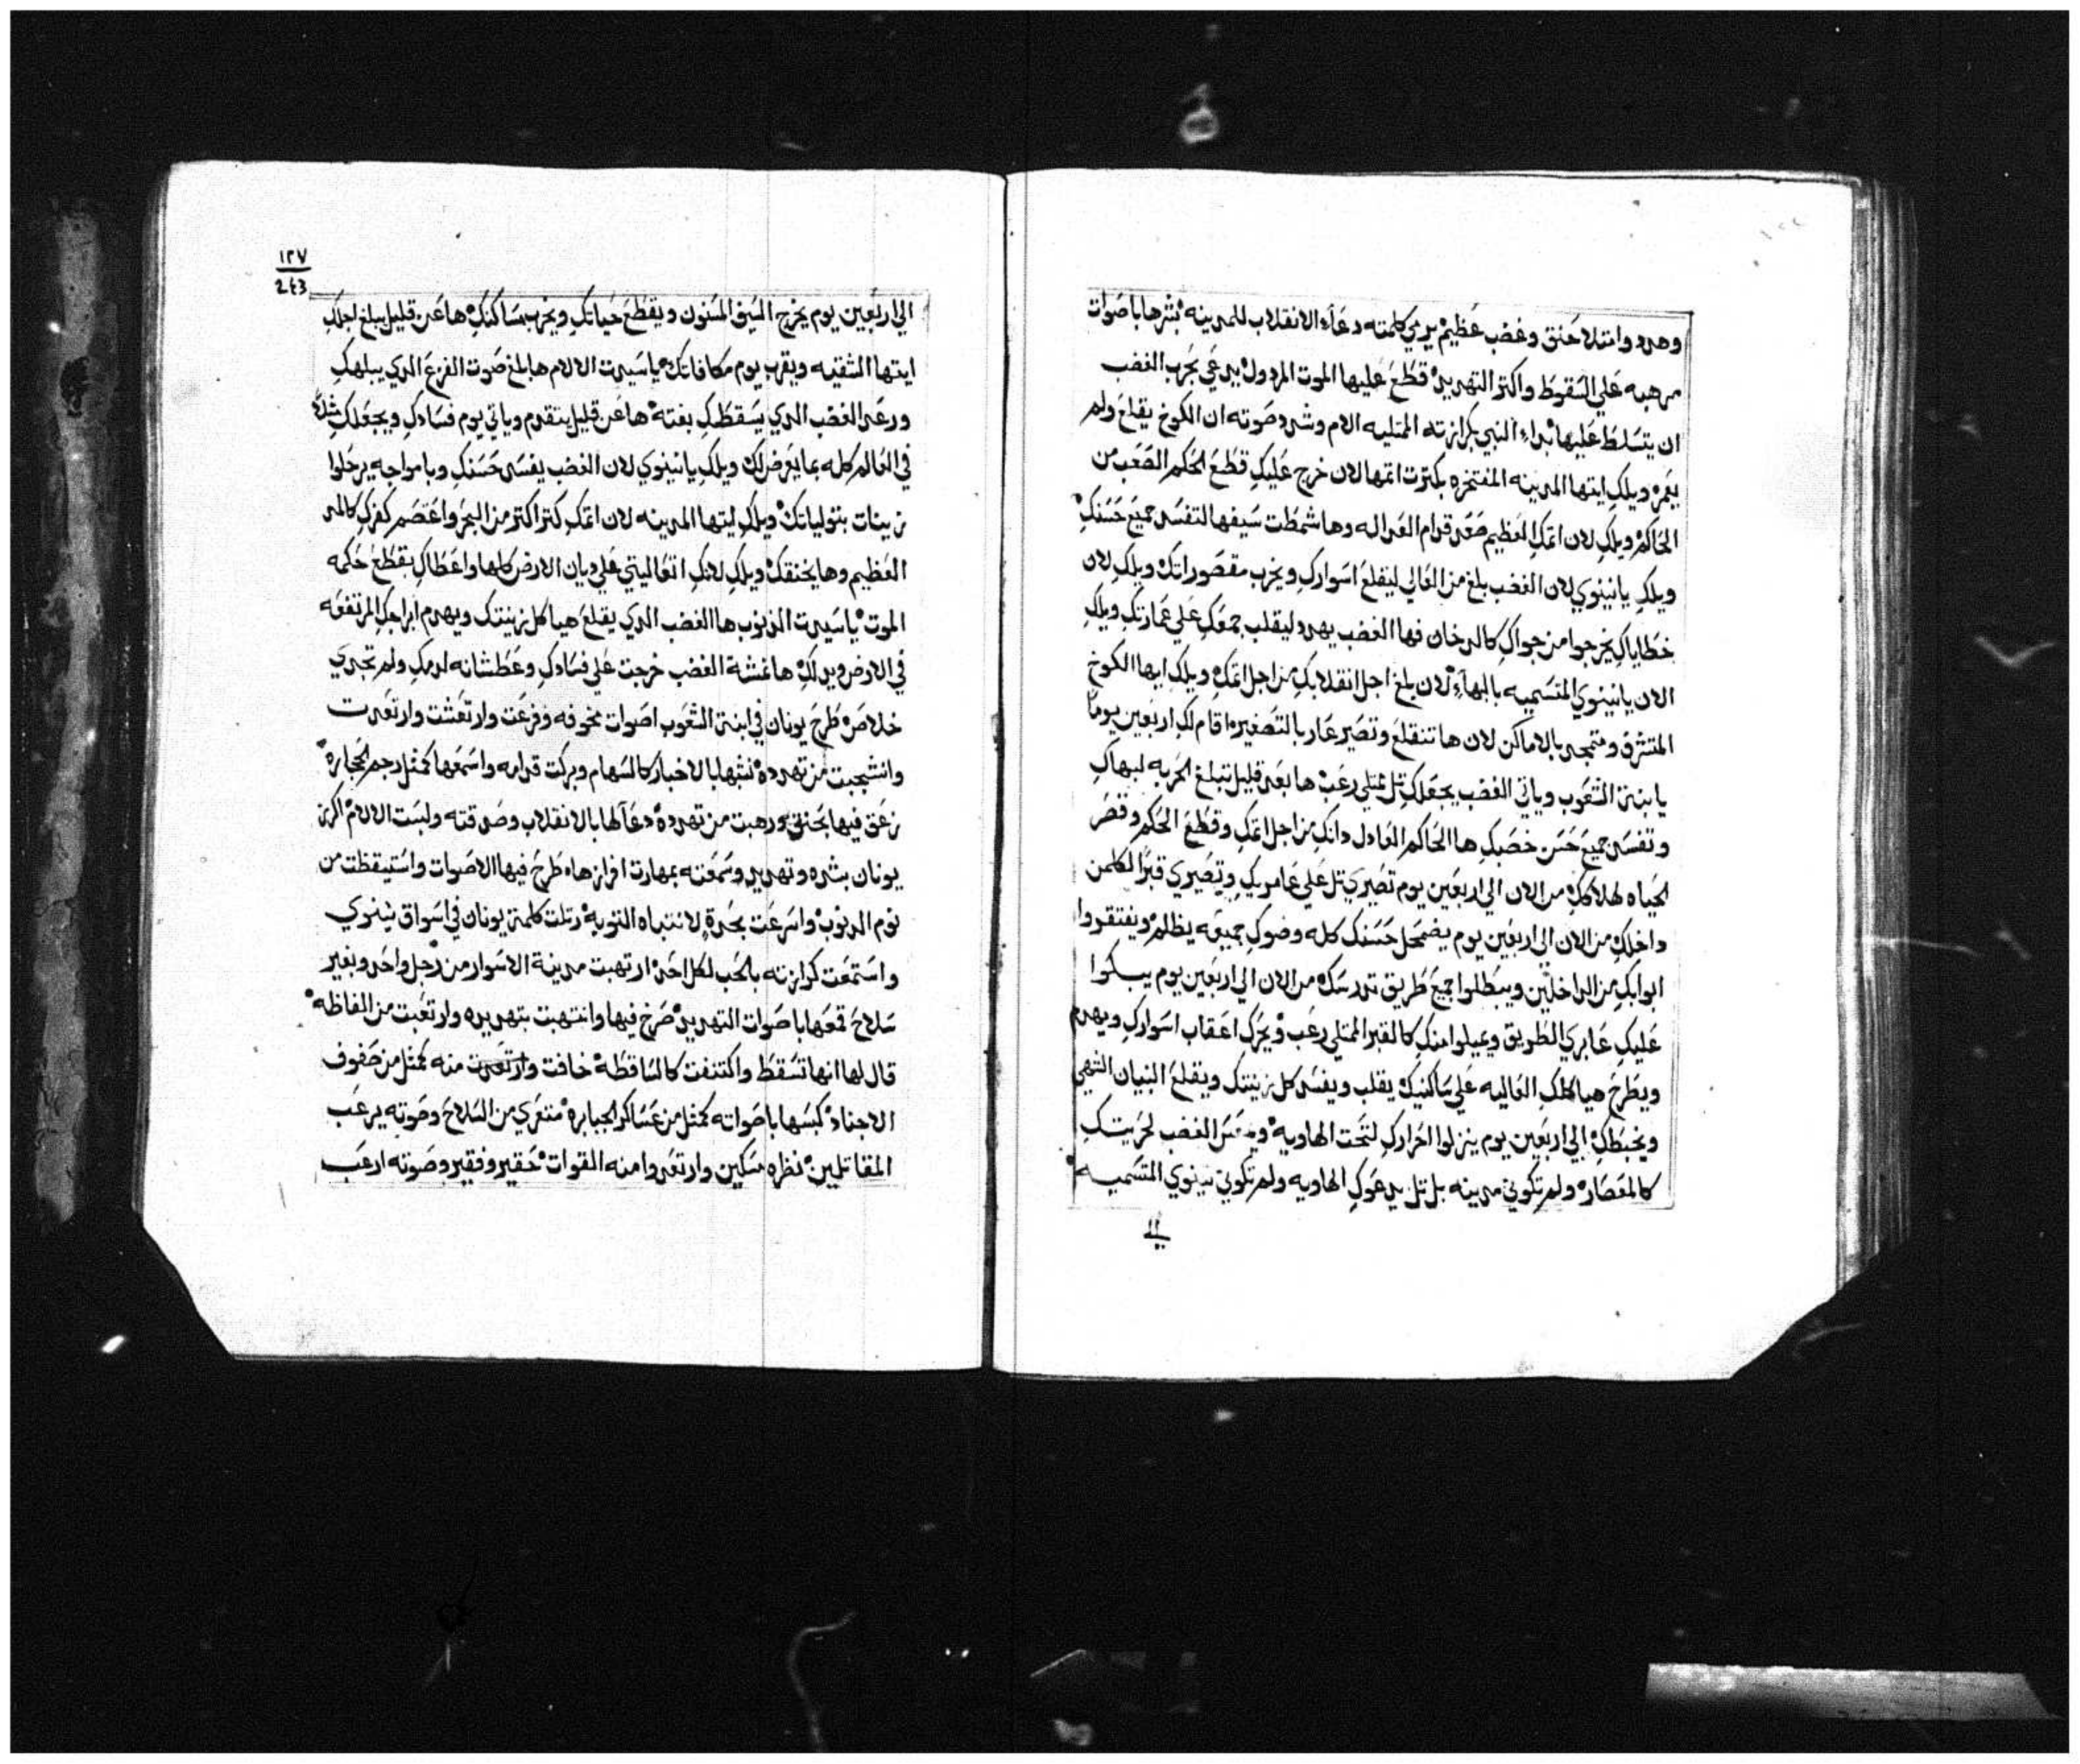 وهدد وامتلا حنق وغضب عظيم يرمي كلمته دعاء الانقلاب للمدينه بشرها باصوات
مرهبه علي السقوط واكتر التهديد قطع عليها الموت المردول يدعي بجرب الغضب
ان يتسلط عليها بداء النبي بكرازته الممتليه الام وشدد صوته ان الكوخ يقلع ولم
يعمر ويلك ايتها المدينه المفتخره بكترت اتمها لان خرج عليك قطع الحكم الصعب من
الحاكم ويلك لان اتمك العظيم صعد قدام العداله وها شمطت سيفها لتفسد جميع حسنك
ويلك يا نينوي لان الغضب بلغ من العالي ليقلع اسوارك ويخرب مقصوراتك ويلك لان
خطاياك يخرجوا من جواك كالدخان فها الغضب يهدد ليقلب جمعك علي عمارتك ويلك
الان يا نينوي المتسميه بالبهاء لان بلغ اجل انقلابك من اجل اتمك ويلك ايها الكوخ
المتشرق ومتمجد بالاماكن لان ها تنقلع وتصير عار بالتصغير اقام لك اربعين يوما
يا بنة الشعوب وياتي الغضب يجعلك تل ممتلي رعب ها بعد قليل تبلغ الحربه لبهاك
وتفسد جميع حسن خصبك ها الحاكم العادل دانك من اجل اتمك وقطع الحكم وقصر
الحياه لهلاكك من الان الي اربعين يوم تصيري تل علي عامريك وتصيري قبرا لكلمن
داخلك من الان الي اربعين يوم يضمحل حسنك كله وضوك جميعه يظلم ويفتقروا
ابوابك من الداخلين ويبطلوا جميع طريق تدرسك من الان الي اربعين يوم يبكوا
عليك عابري الطريق ويميلوا منك كالقبر الممتلي رعب ويحرك اعقاب اسوارك ويهدم
ويطرح هياكلك العاليه علي ساكنيك يقلب ويفسد كل زينتك ويقلع البنيان الشهي
ويخبطك الي اربعين يوم ينزلوا احرارك لتحت الهاويه الغضب لحريتك
كالمعصاره ولم تكوني مدينه بل تل يدعوك الهاويه ولم تكوني نينوي المتسميه
الي
١٢٧
243
الي اربعين يوم يخرج السيف المسنون ويقطع حياتك ويخرب مساكنك ها عن قليل يبلغ اجلك
ايتها الشقيه ويقرب يوم مكافاتك يا سيدت الالام ها بلغ صوت الفزع الدي يبلهك
ورعد الغضب الدي يسقطك بغته ها عن قليل يتقدم وياتي يوم فسادك ويجعلك
في العالم كله بما يعرض لك ويلك يا نينوي لان الغضب يفسد حسنك وبامواجه يرحلوا
زينات بتولياتك ويلك ايتها المدينه لان اتمك كتر اكتر من البحر واعتصم كفرك كالمد
العظيم وها يخنقك ويلك لانك اتعاليتي علي ديان الارض كلها واعطاك بقطع حكمه
الموت يا سيدت الدنوب ها الغضب الدي يقلع هياكل زينتك ويهدم ابراجك المرتفعه
في الارض ويدلك ها غمشة الغضب خرجت علي فسادك وعطشانه لدمك ولم تجدي
خلاص طرح يونان في ابنة الشعوب اصوات مخوفه وفزعت وارتعشت وارتعدت
وانشجبت من تهدده نشبها بالاخبار كالسهام وبركت قدامه واسمعها كمثل رجم الحجاره
زعق فيها بحنق ورهبت من تهدده دعا لها بالانقلاب وصدقته ولبست الالام اكرز
يونان بشره وتهديد وسمعته بمهارت افرازها طرح فيها الاصوات واستيقظت من
نوم الدنوب واسرعت بجده لانتباه التوبه رتلت كلمة يونان في اسواق نينوي
واستمعت كرازته بالحب لكل احد ارتهبت مدينة الاسوار من رجل واحد وبغير
سلاح قمعها باصوات التهديد صرخ فيها وانتهبت بتهديده وارتعبت من الفاظه
قال لها انها تسقط واكتنفت كالساقطه خافت وارتعدت منه كمثل من صفوف
الاجناد كبسها باصواته كمثل من عساكر الجبابره متعري من السلاح وصوته يرعب
المقاتلين نظره مسكين وارتعدوا منه القوات حقير وفقير وصوته ارعب